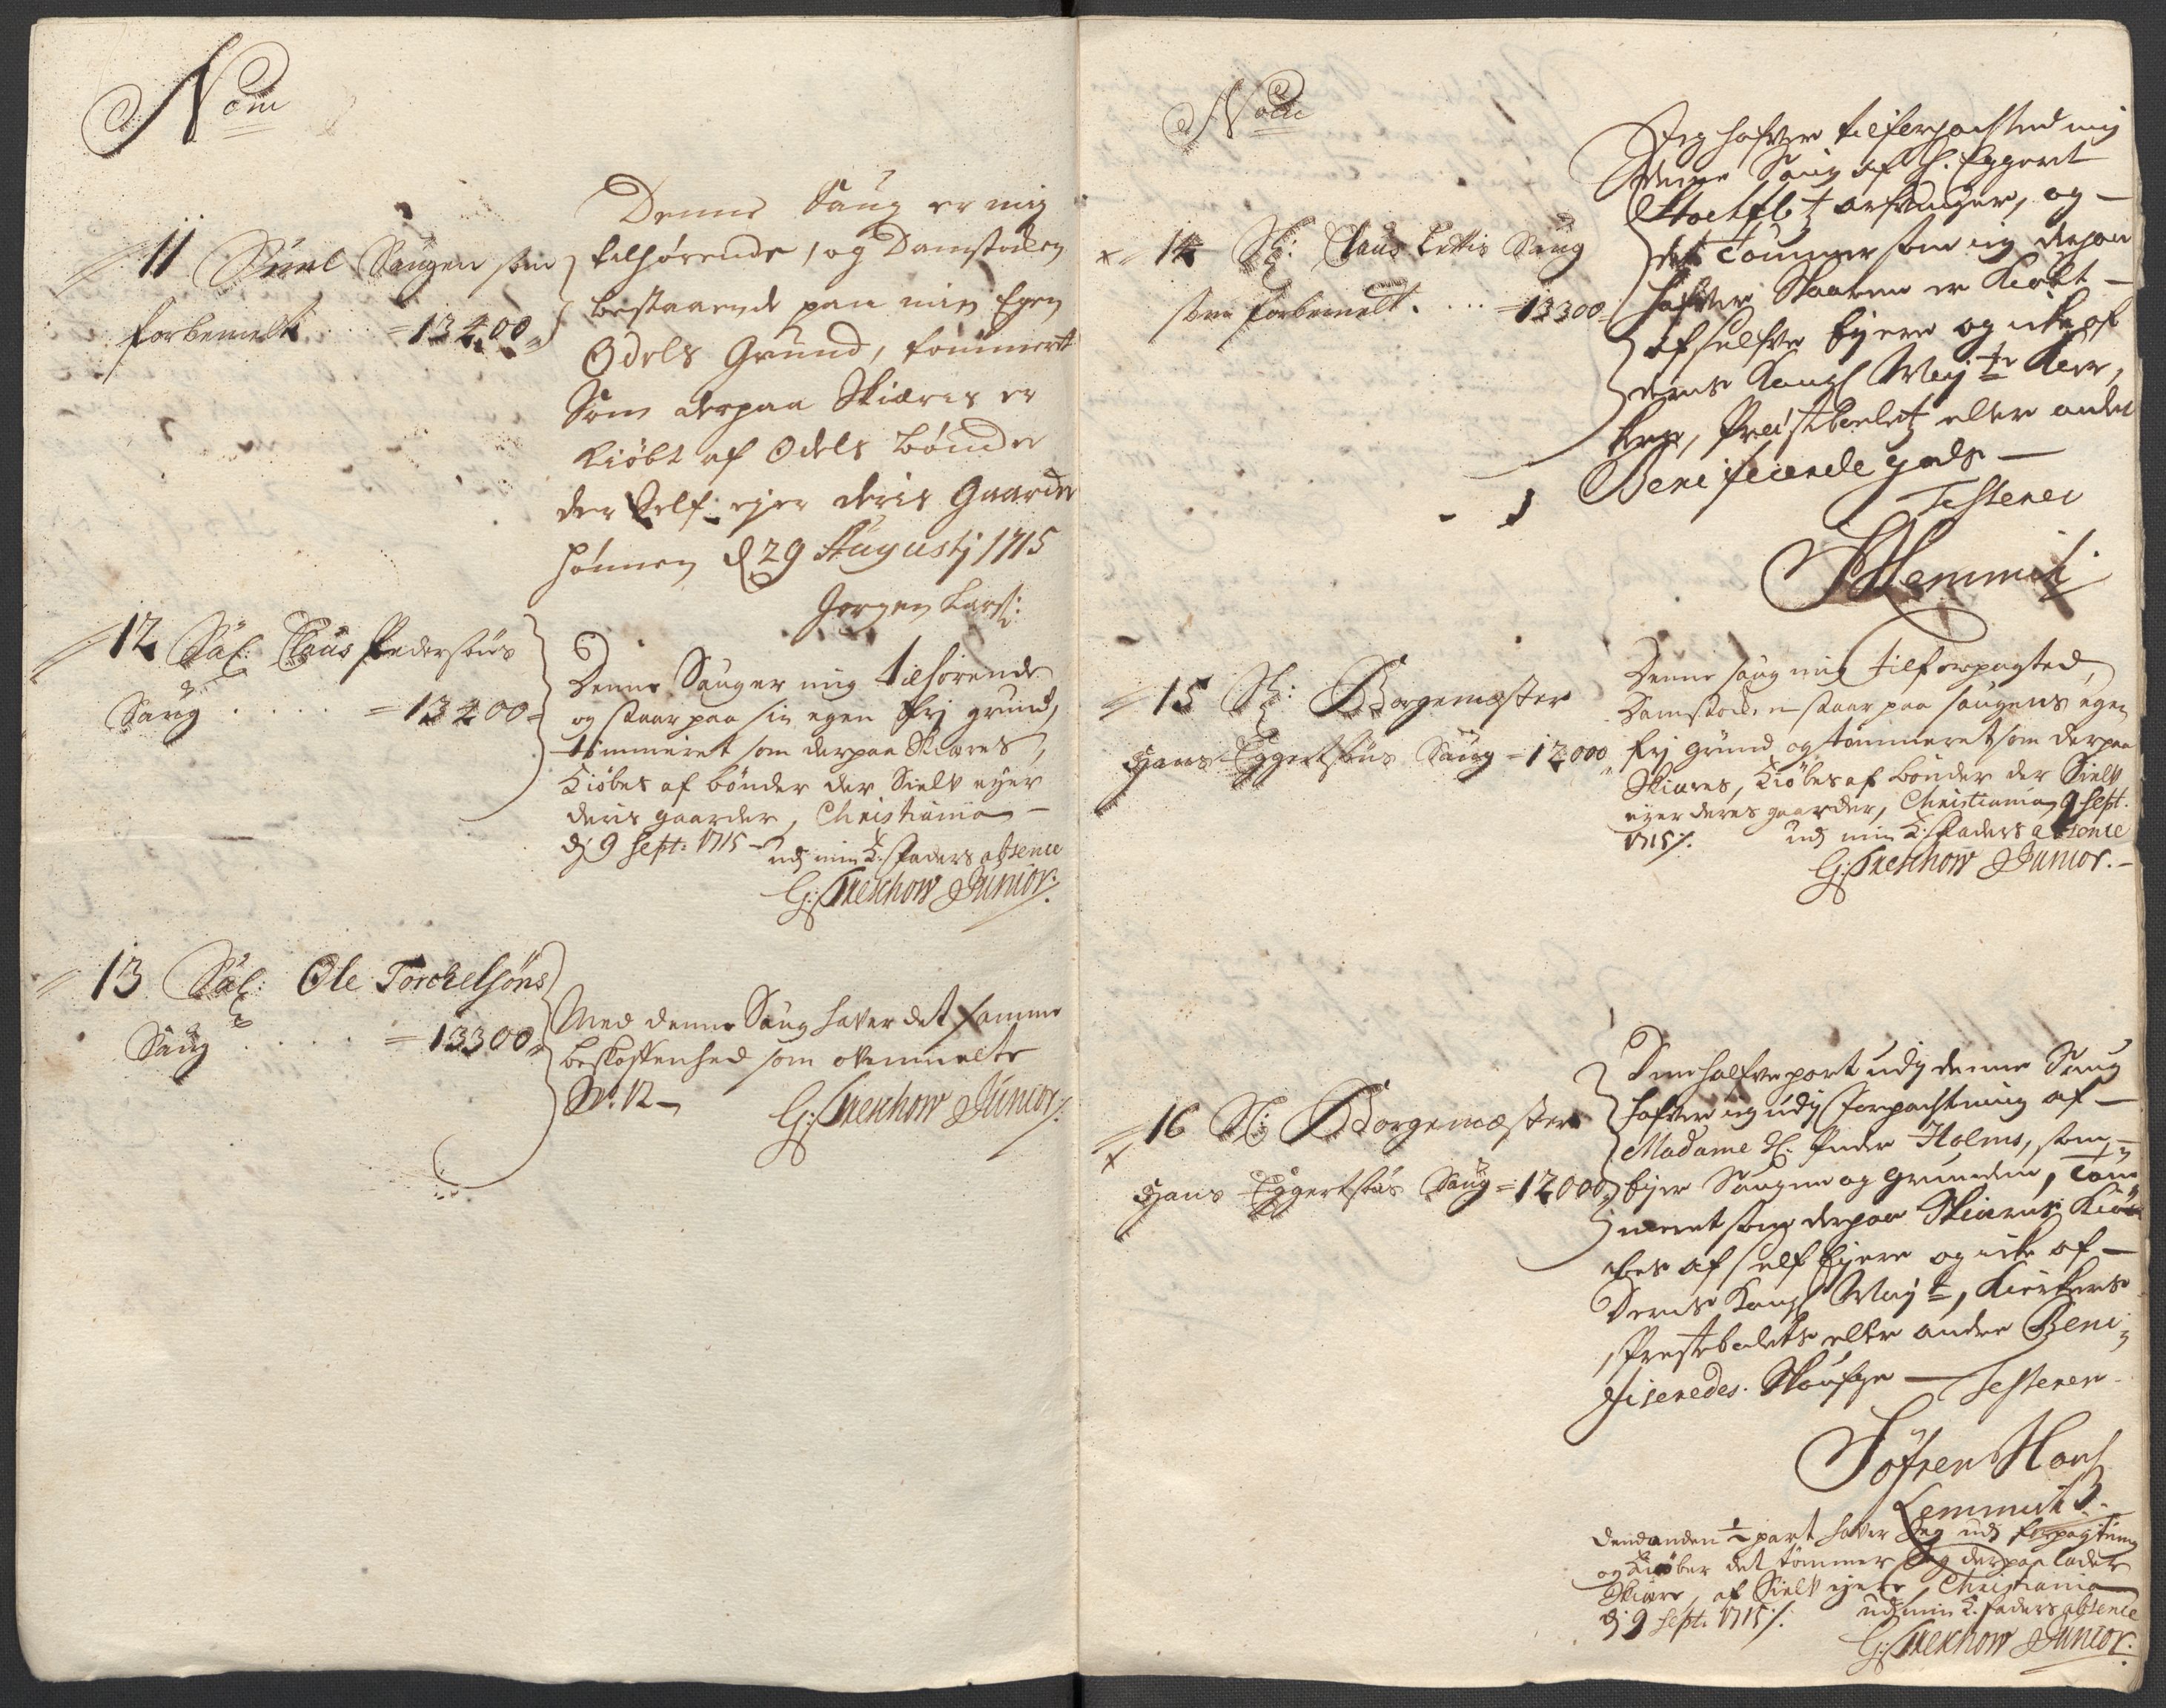 Nom
11 Saugen som
forbemelt = 13400
Denne Saug er mig
tilhørende, og Damstoelen
bestaaende paa min Egen
Odels Grund, tømmert
Som derpaa Skiæris er
kiøbt af Odels bønder
der Self ejer deris Gaarder
d 29 Augustj 1715
Jørgen Larss:
12 Sal: Claus Pedersøns
Saug . . . . = 13400 =
Denne Saug er mig tilhørende
og staar paa sin egen frj grund,
tømmeret som derpaa Skiæres,
Kiøbes af bønder der Sielv eyer
deris gaarder, Christiania
dj 9 Sept: 1715 – udj min K: faders absence
G: Treschow Junior.
13 Sal: Ole Torchelsøns
Saug . . . . = 13300
Med denne Saug haver det samme
beskaffenhed som ovenmelte
No: 12 –
G: Treschow Junior
Nom
14 Sl: Claus Saug
som forbemelt . . . = 13300
Jeg hafver tilforpachted mig
denne Saug af H: Eggert
Stochflet arfvinger, og –
det tømmer som jeg derpaa
hafver Skaaren er Kiøbt –
af selfve Ejere og icke af
deris Kongl May:tz Kir,
kers, Præstboeletz eller andet
Benificerede gods –
Testerer
SHLemmich
15 Sl: Borgemæster
Hans Eggertsøns Saug = 12000
Denne saug mig tilforpagted,
Damstoelen staar paa saugens egen
frj grund og tømmeret som derpaa
Skiæres, Kiøbes af bønder der Sielv
eyer deres gaarder, Christiania 9 Sept:
1715 ⁒ udj min K: faders absence
G: Treschow Junior. –
16 Sl: Borgemæster
Hans Eggertsøns Saug = 12000
Den halfve part udj denne Saug
hafver jeg udj forpachtning af –
Madame Sl. Peder Holms, som
Ejer Saugen og grunden, tøm
meret som derpaa Skiæris Kiø
bes af self Ejere og icke af –
Deris Kongl May:tz, Kirkens
Præstebolets eller andre Beni
ficeredes Skoufve – Testerer
Søfren Hans
Lemmich
Dend anden ½ part haver Jeg udj forpagtning
og Kiøber det tømmer Jeg derpaa lader
Skiære, af Sielv ejere, Christiania
dj 9 Sept: 1715 ⁒ udj min K. faders absence
G: Treschow Junior.